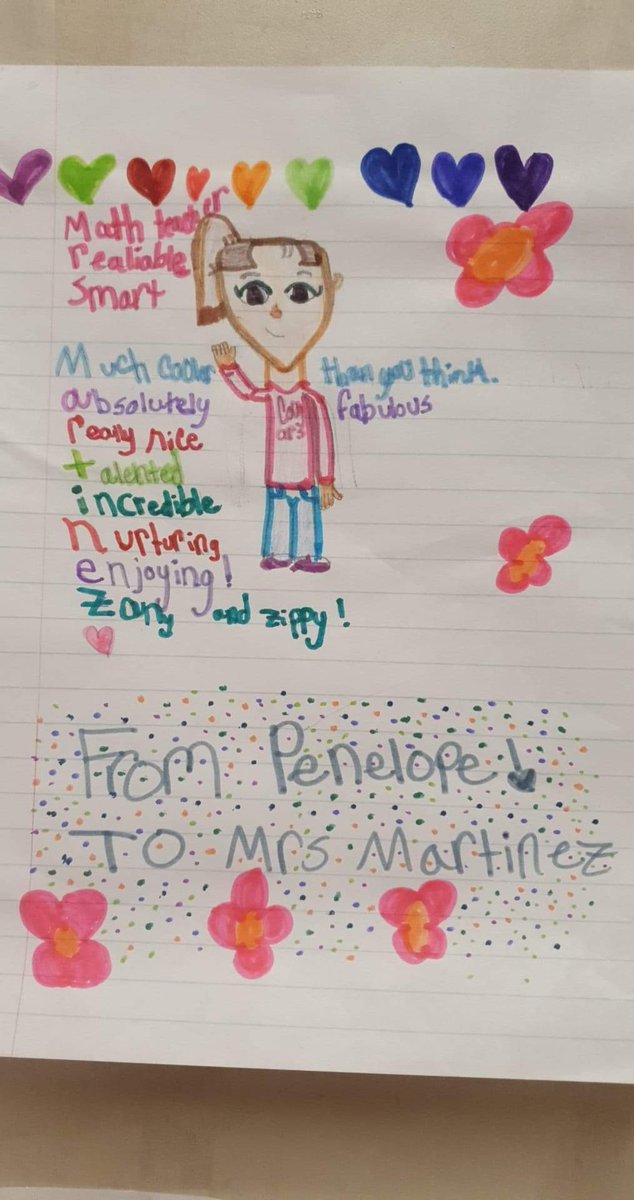 Math teacher
realiable
smart
Much cooler than you think.
absolutely fabulous
really nice
talented
incredible
nurturing
enjoying!
zany and zippy!
From Penelope!
To Mrs Martinez